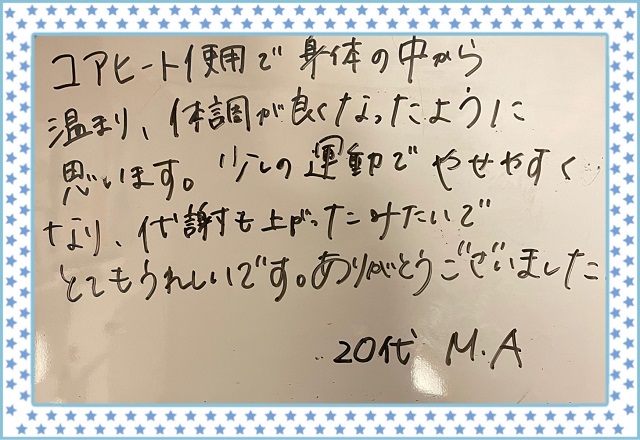 コアヒート使用で身体の中から
温まり、体調が良くなったように
思います。少しの運動でやせやすく
なり、代謝も上がったみたいで
とてもうれしいです。ありがとうございました
20代 M.A